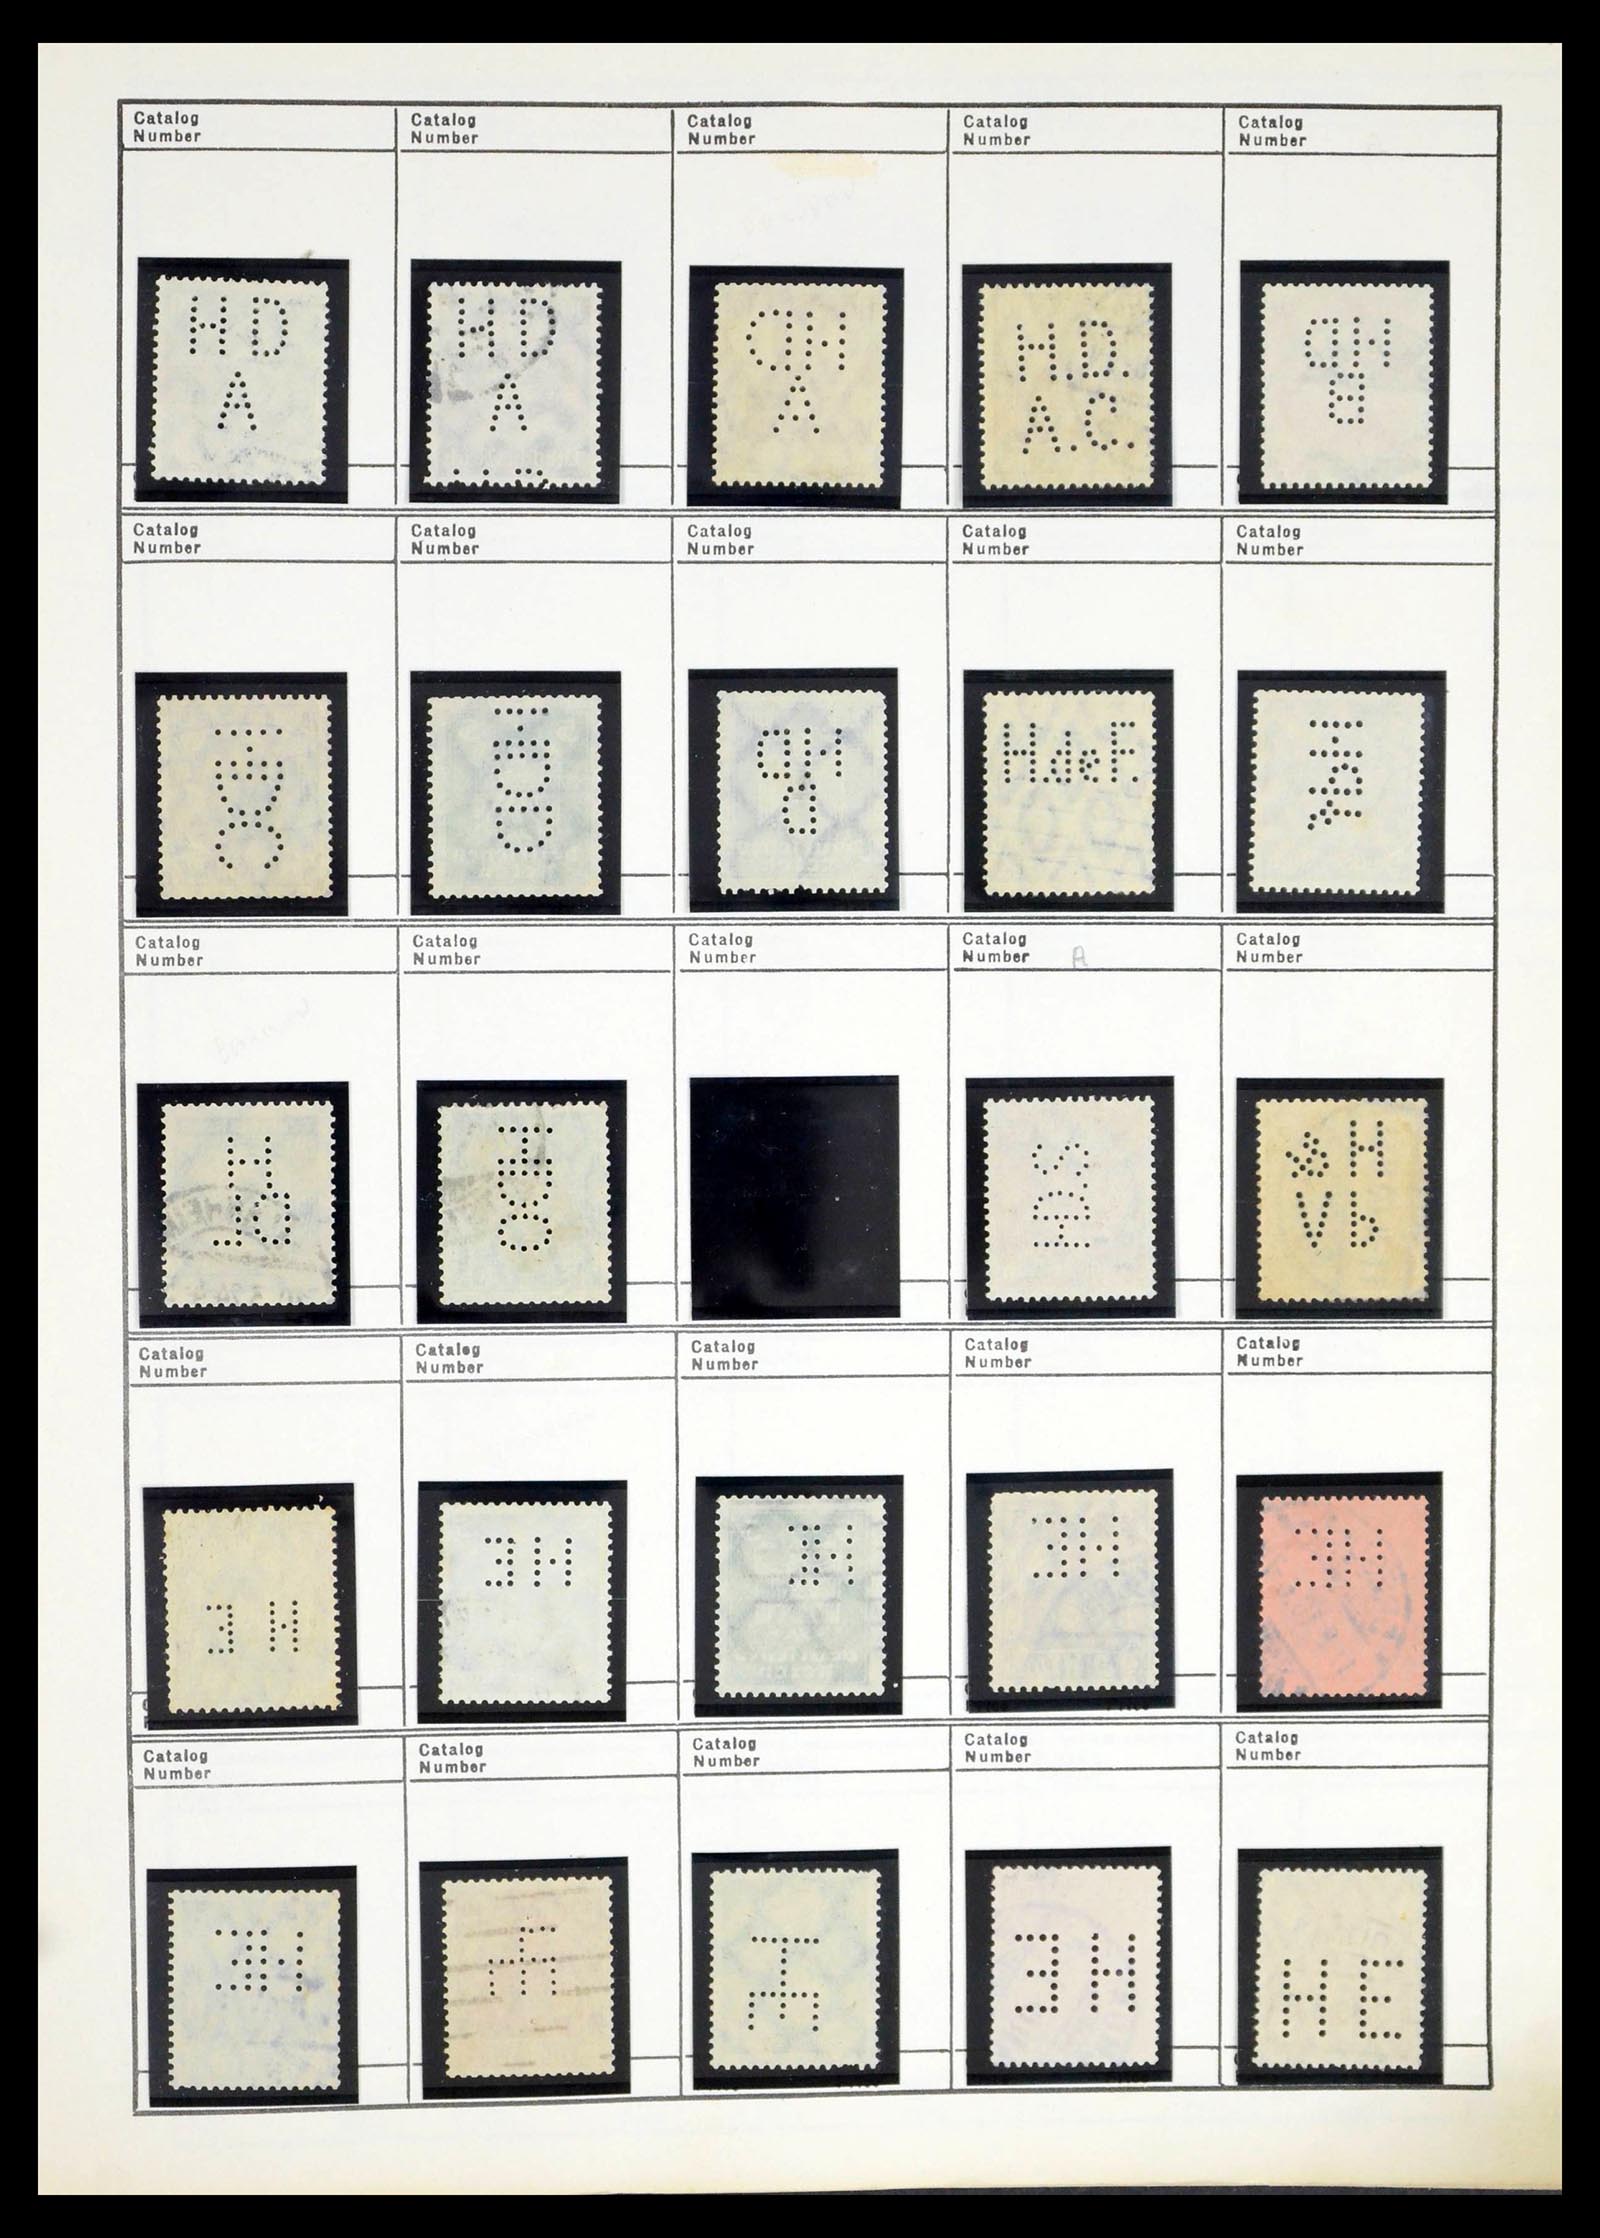 Catalog Number
Catalog Number
Catalog Number
Catalog Number
Catalog Number
H D
A
H D
A
H D
A
H.D.
A.C.
H D
B
Catalog Number
Catalog Number
Catalog Number
Catalog Number
Catalog Number
H.de F.
Catalog Number
Catalog Number
Catalog Number
Catalog Number A
Catalog Number
HDS
Catalog Number
Catalog Number
Catalog Number
Catalog Number
Catalog Number
H E
H E
H E
H E
H E
Catalog Number
Catalog Number
Catalog Number
Catalog Number
Catalog Number
H E
H E
H E
H E
H E